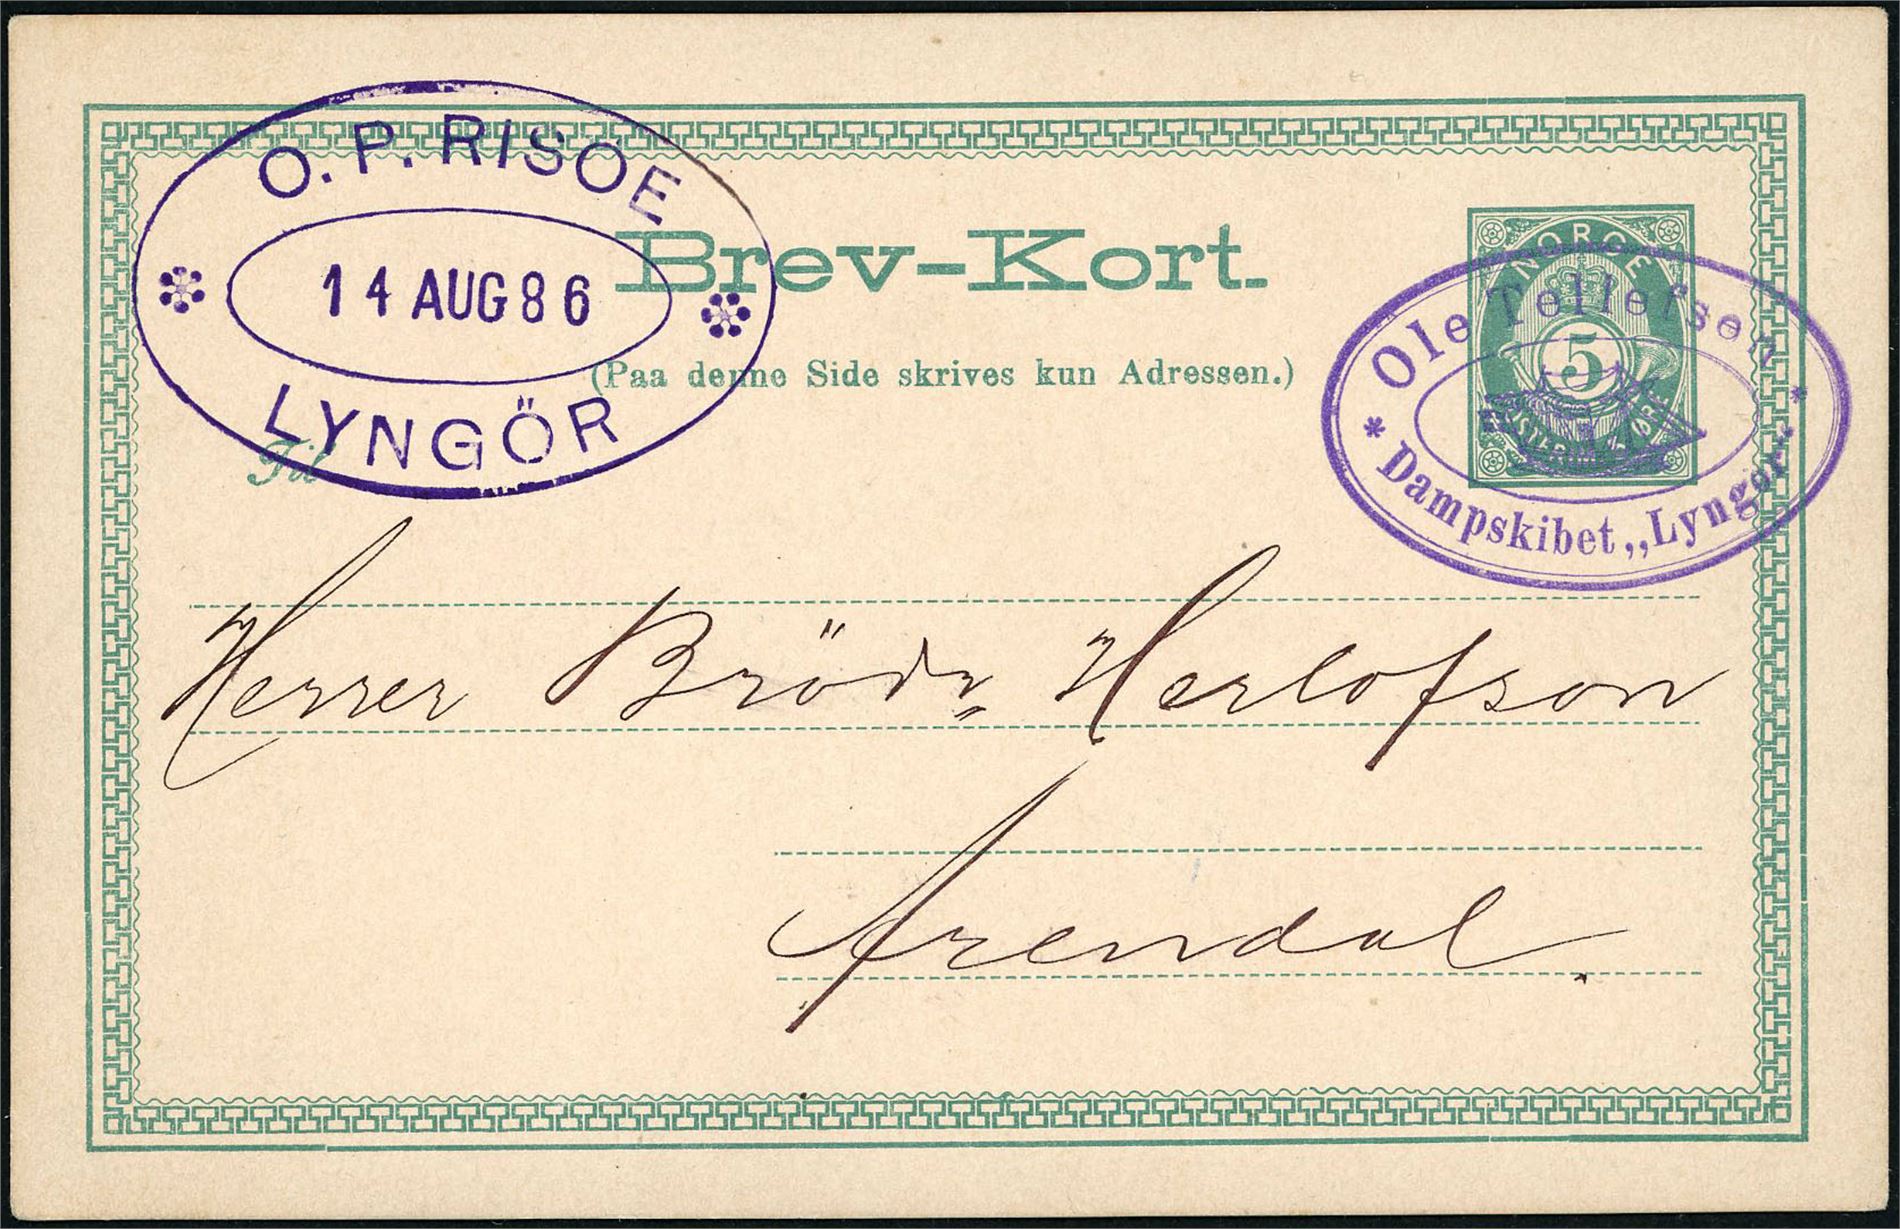 O. P. RISÖE
14 AUG 86
LYNGÖR
Brev-Kort.
(Paa denne Side skrives kun Adressen.)
Til
NOREGE
5
Ole Tellefsen
Dampskibet „Lyngör"
Herrer Brödr. Herlofson
Arendal.